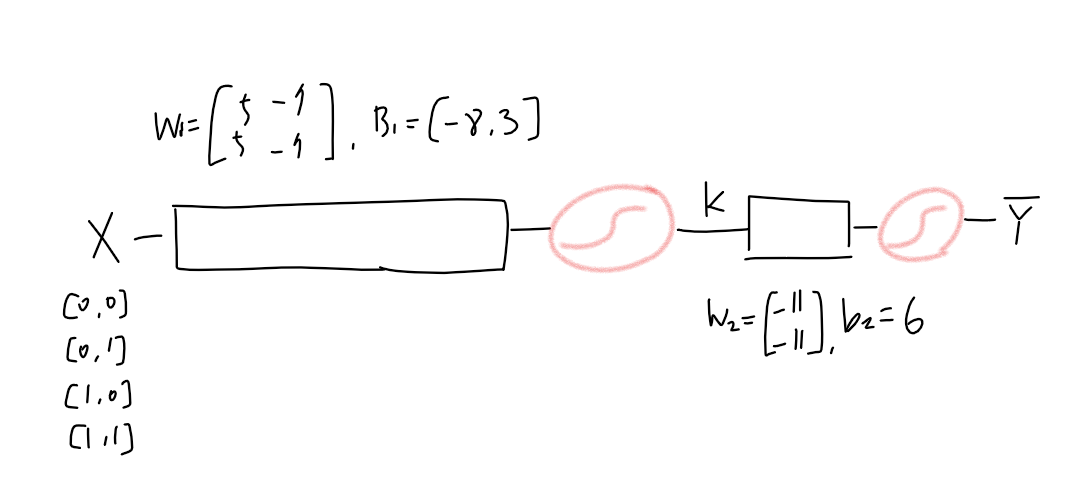 W1 = [5 -7
5 -7], B1 = [-8, 3]
X K Y̅
[0,0]
[0,1]
[1,0]
[1,1]
W2 = [-11
-11], b2 = 6